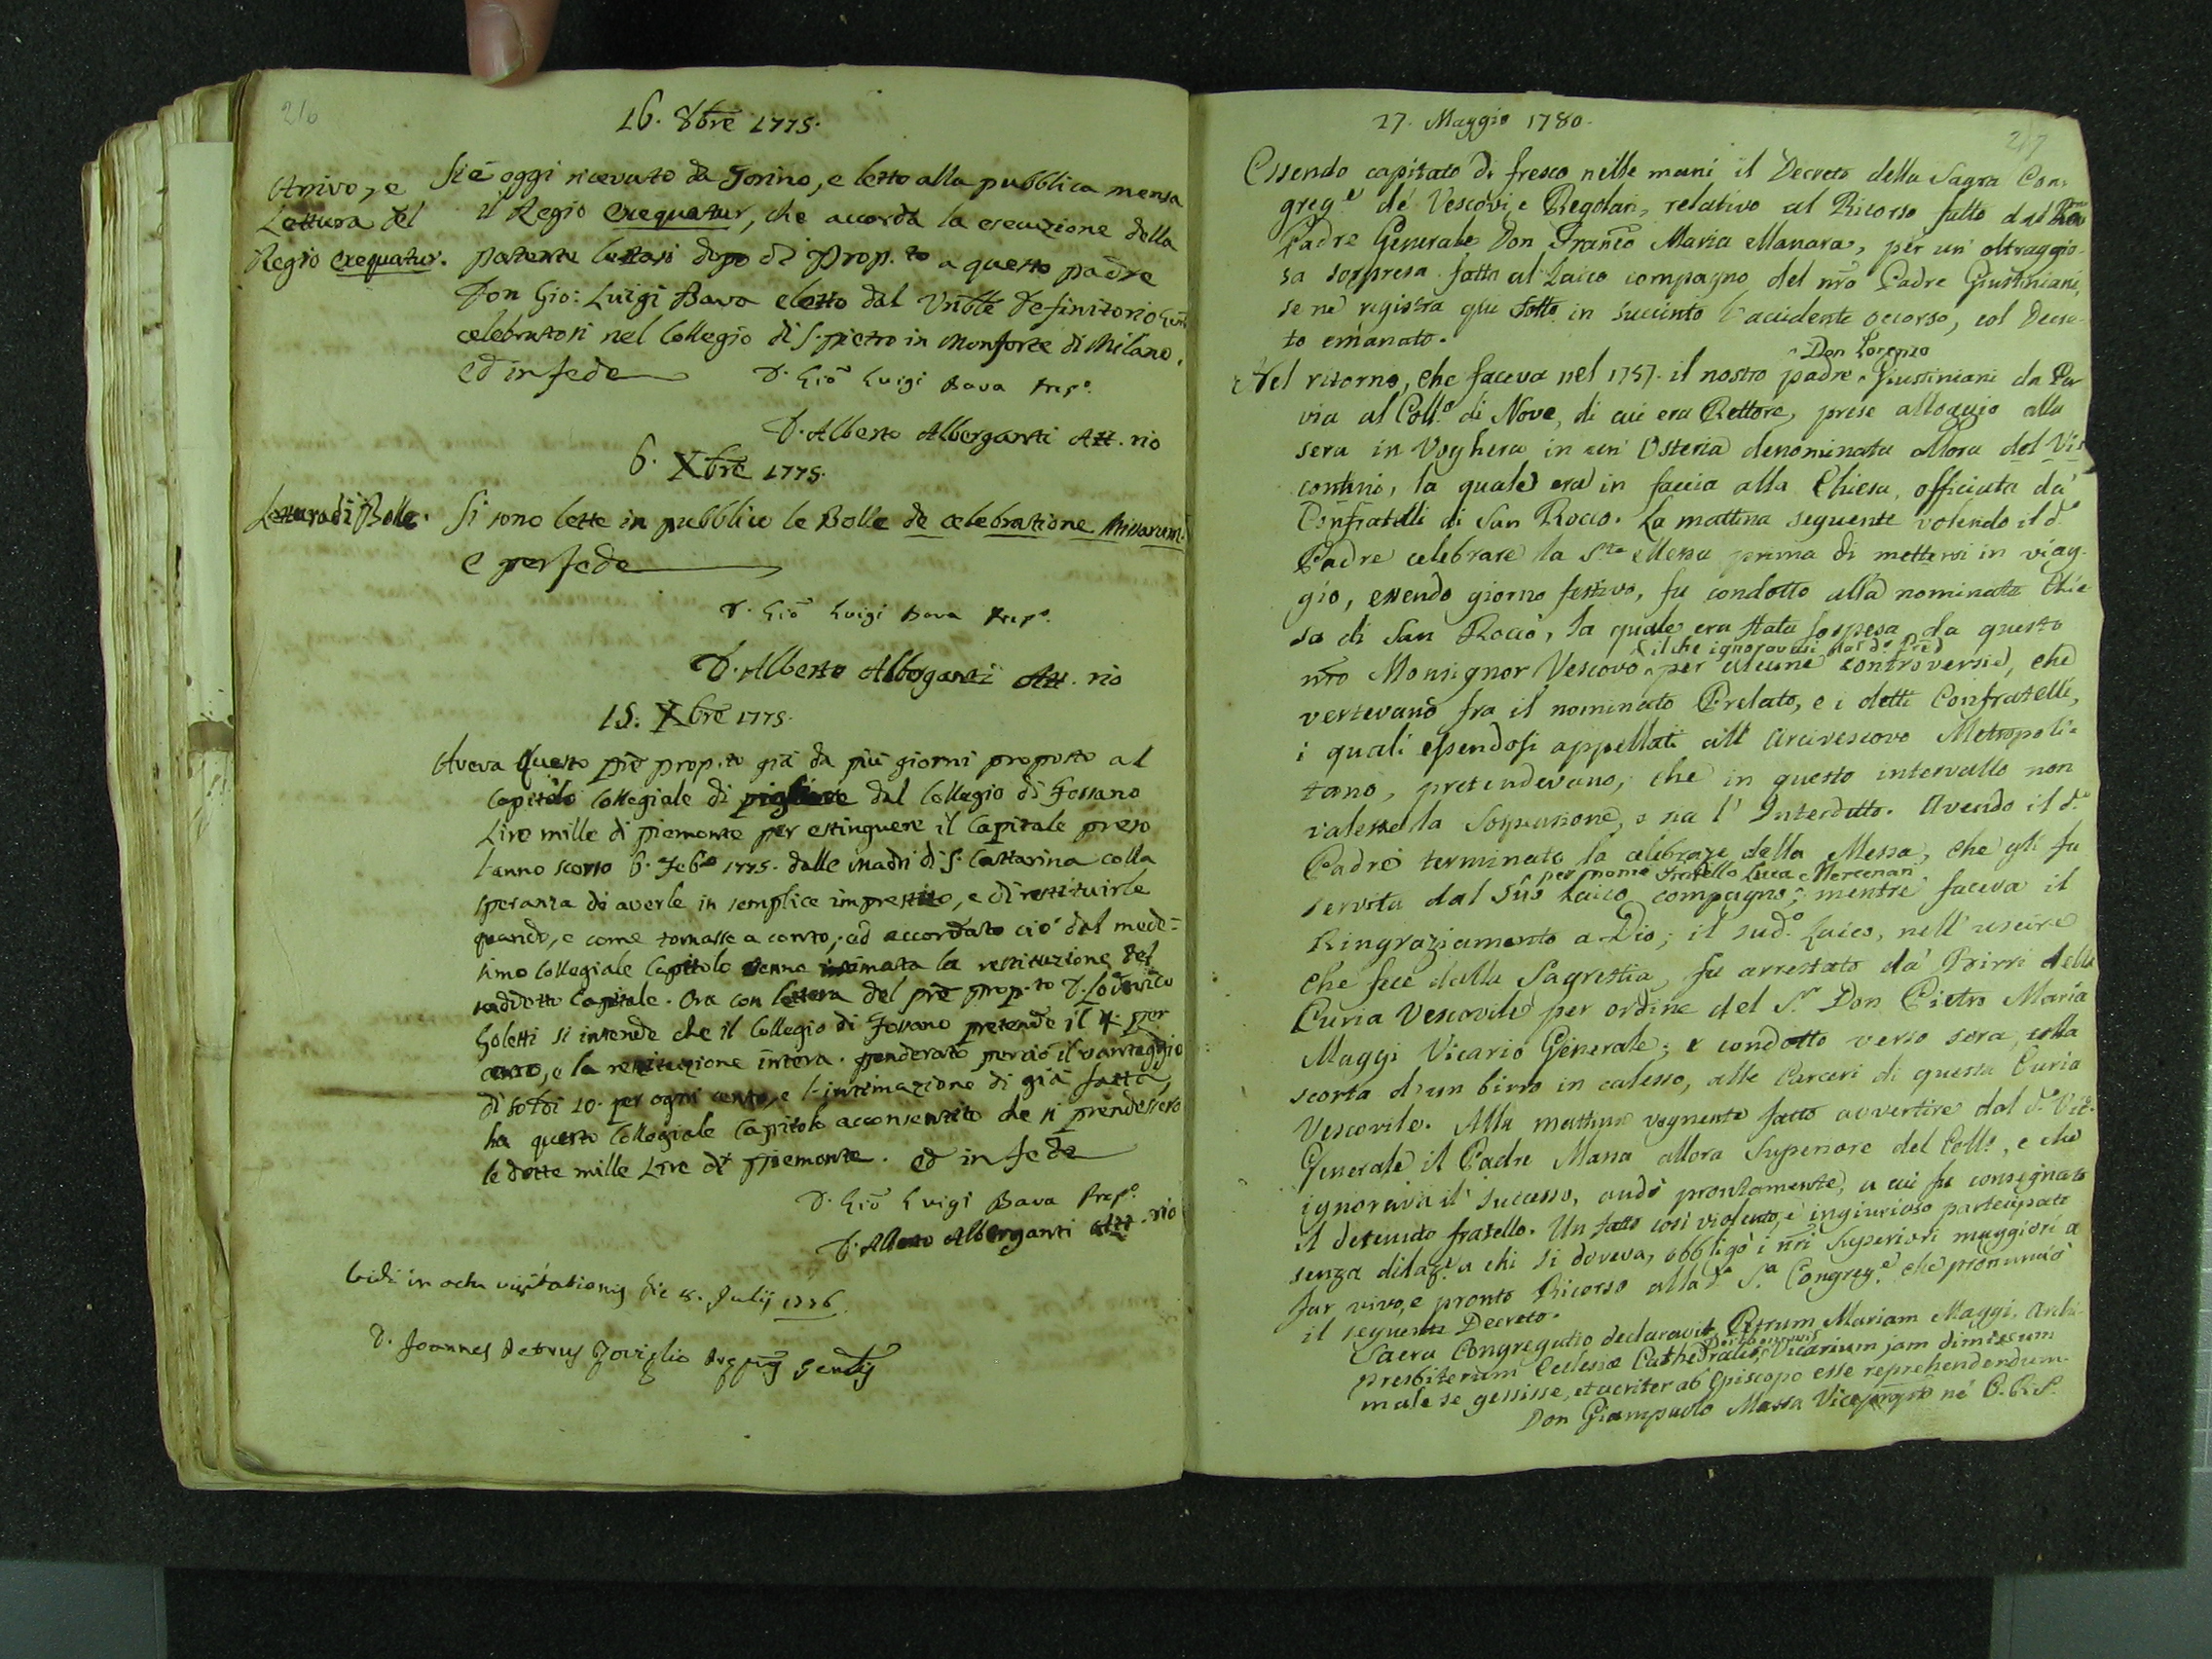 216
16. 8bre 1775.
Arrivo, e
Lettura del
Regio exequatur.
Si è oggi ricevuto da Torino, e letto alla pubblica mensa
il Regio exequatur, che accorda la esecuzione della
patente lettasi dopo di Prop.to a questo padre
Don Gio: Luigi Bava eletto dal Vnble Definitorio Gen
celebratosi nel Collegio di S. pietro in Monforte di Milano.
ed in fede
D. Gio Luigi Bava Prep.o
D. Alberto Alberganti Att.rio
6. Xbre 1775.
Lettura di Bolle.
Si sono lette in pubblico le Bolle de celebratione Missarum.
e per fede
D. Gio Luigi Bava Prep.o
D. Alberto Alberganti Att.rio
15. Xbre 1775.
Aveva questo pre prop.to già da più giorni proposto al
Capitolo Collegiale di pigliare dal Collegio di Fossano
Lire mille di piemonte per estinguere il Capitale preso
l'anno scorso 6. Feb.o 1775. dalle madri di S. Cattarina colla
speranza di averle in semplice imprestito, e di restituirle
quando, e come tornasse a conto; ed accordato ciò dal mede=
simo Collegiale Capitolo venne intimata la restituzione del
suddetto Capitale. Ora con lettera del pre prop.to D. Lodovico
Goletti si intende che il Collegio di Fossano pretende il 4. per
cento, e la restituzione intera. ponderato perciò il vantaggio
di soldi 10. per ogni cento, e l'intimazione di già fatta
ha questo Collegiale Capitolo acconsentito che si prendessero
le dette mille Lire di piemonte. ed in fede
D. Gio Luigi Bava Prep.o
D. Alberto Alberganti Att.rio
Vidi in actu visitationis die 8. Julij 1776.
D. Joannes Petrus
217
27. Maggio 1780.
Essendo capitato di fresco nelle mani il Decreto della Sagra Con=
greg.e de' Vescovi, e Regolari, relativo al Ricorso fatto dal Rmo
Padre Generale Don Franco Maria Manara, per un' oltraggio=
sa sorpresa fatta al Laico compagno del nro Padre Giustiniani,
se ne registra qui sotto in succinto l'accidente occorso, col Decre=
to emanato.
Nel ritorno, che faceva nel 1757. il nostro padre ^Don Lorenzo Giustiniani da Pa=
via al Coll.o di Nove, di cui era Rettore, prese alloggio alla
sera in Voghera in un' Osteria denominata allora del Vis
contini, la quale era in faccia alla Chiesa, officiata da'
Confratelli di San Rocco. La mattina seguente volendo il d.o
Padre celebrare la S.ta Messa prima di mettersi in viag=
gio, essendo giorno festivo, fu condotto alla nominata Chie
sa di San Rocco, la quale era stata sospesa da questo
nro Monsignor Vescovo ^il che ignoravasi dal d.o Pred per alcune controversie, che
vertevano fra il nominato Prelato, e i detti Confratelli,
i quali essendosi appellati all' Arcivescovo Metropoli=
tano, pretendevano, che in questo intervallo non
valesse la Sospensione, o sia l' Interdetto. Avendo il d.o
Padre terminata la celebraze della Messa, che gli fu
servita dal suo Laico compagno, ^per nome Fratello Luca Mercenari mentre faceva il
Ringraziamento a Dio; il sud.o Laico, nell' uscire
che fece dalla Sagrestia, fu arrestato da' Birri della
Curia Vescovile per ordine del S.r Don Pietro Maria
Maggi Vicario Generale; e condotto verso sera, colla
scorta d'un birro in calesso, alle Carceri di questa Curia
Vescovile. Alla mattina vegnente fatto avvertire dal d.o Vic.
Generale il Padre Massa allora Superiore del Coll.o, e che
ignorava il successo, andò prontamente, a cui fu consegnato
il detenuto fratello. Un fatto così violento, e ingiurioso partecipato
senza dilaz.e a chi si doveva, obbligò i nri Superiori maggiori a
far vivo, e pronto Ricorso alla d.a S.a Congreg.e che pronunciò
il seguente Decreto.
Sacra Congregatio declaravit Petrum Mariam Maggi, Archi=
presbiterum Ecclesiæ Cathedralis, Vicarium jam dimissum
male se gessisse, et acriter ab Episcopo esse reprehendendum.
Don Giampaolo Massa Viceprepto ne' C. R. S.